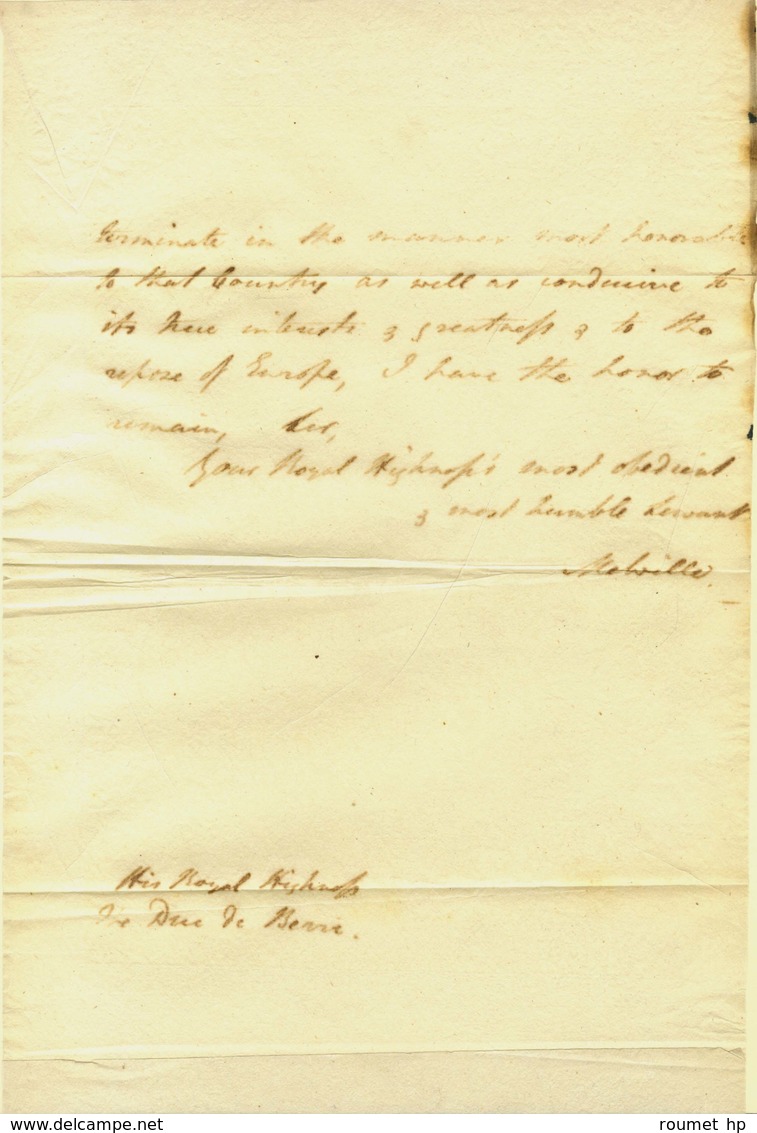 terminate in the manner most honorable
to that Country as well as conducive to
its true interests & greatness & to the
repose of Europe, I have the honor to
remain, Sir,
Your Royal Highness's most obedient
& most humble Servant
Melville.
His Royal Highness
The Duc de Berri.
delcampe.net
roumet hp